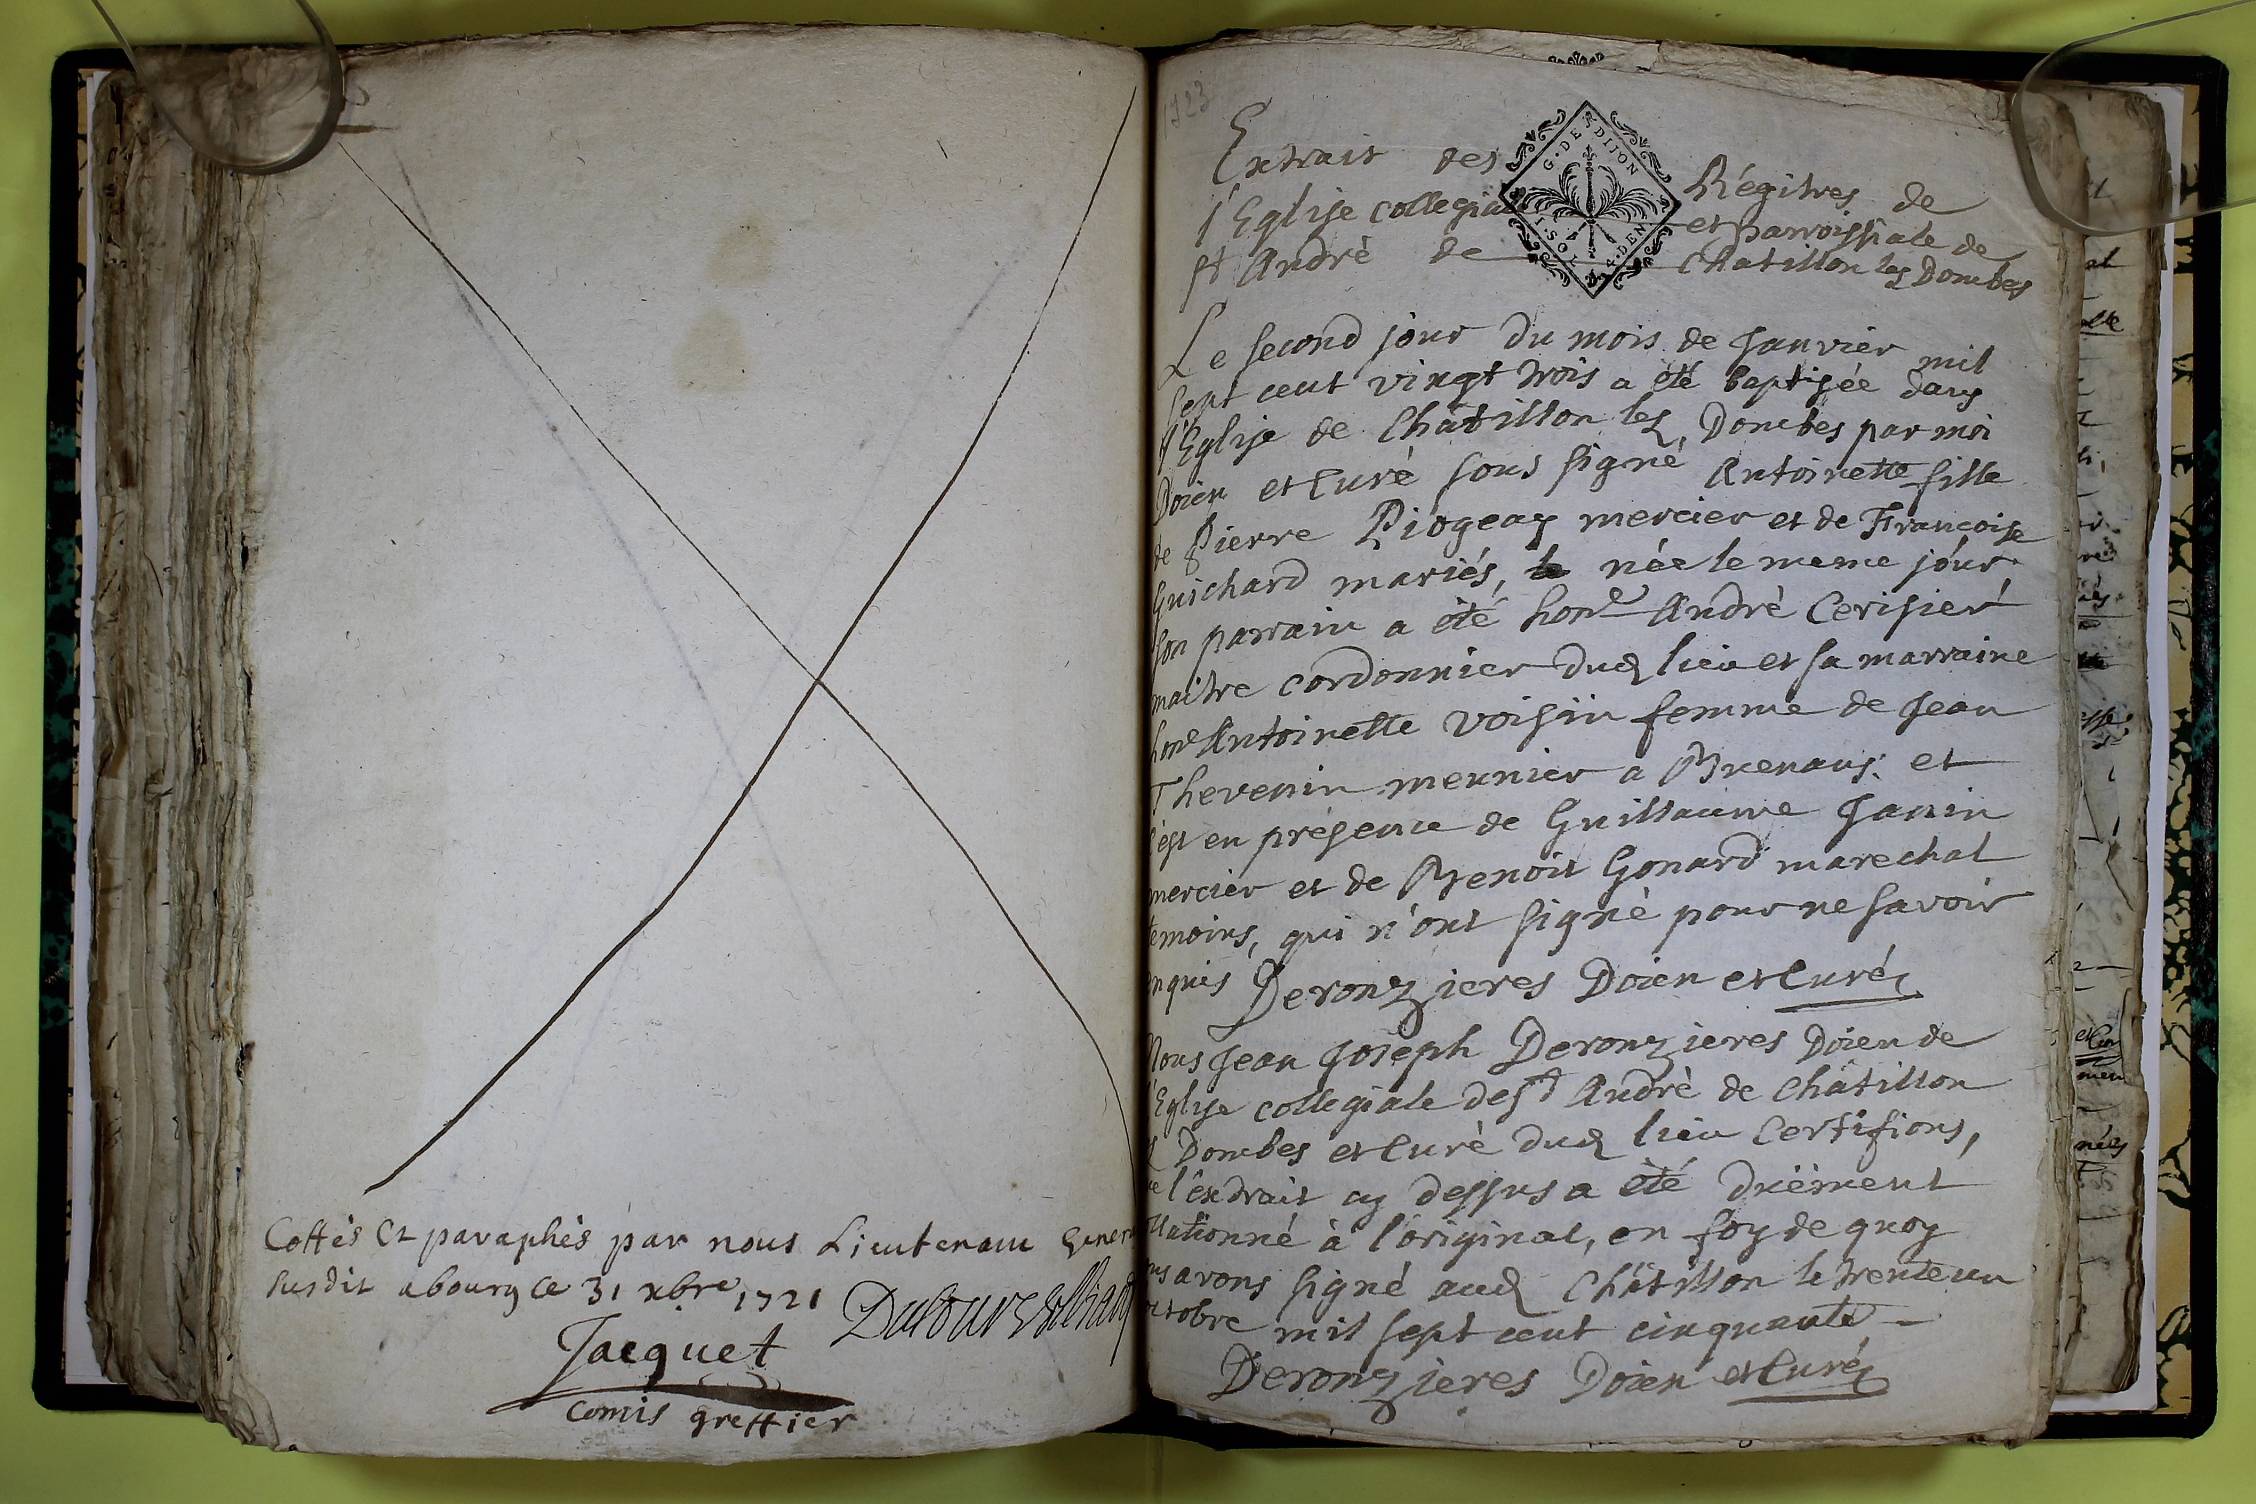 Cottés Et paraphés par nous Lieutenant Genera
susdit a bourg ce 31 xbre 1721
Jacquet
comis greffier
1723
Extrait des Régitres de
l'Eglise collegiale et parroissiale de
st André de Chatillon les Dombes
G. DE DIJON
1. SOL 4. DEN
Le second jour du mois de Janvier mil
sept cent vingt trois a été baptisée dans
l'Eglise de Châtillon les Dombes par moi
Doien et Curé sous signé Antoinette fille
de Pierre Piogeay mercier et de Francoise
Guichard mariés, née le meme jour
son parrain a été hone André Cerisier
maitre cordonnier dud lieu et sa marraine
hone Antoinette Voisin femme de Jean
Thevenin meunier a Brenans: et
c'est en présence de Guillaume Janin
mercier et de Benoit Gonard marechal
temoins, qui n'ont signé pour ne savoir
enquis Deronzieres Doien et Curé
Nous Jean Joseph Deronzieres Doien de
l'Eglise collegiale de st André de Châtillon
Dombes et Curé dud lieu Certifions,
l'extrait cy dessus a été duëment
llationné à l'original, en foy de quoy
us avons signé aud Châtillon le trente un
octobre mil sept cent cinquante
Deronzieres Doien et Curé